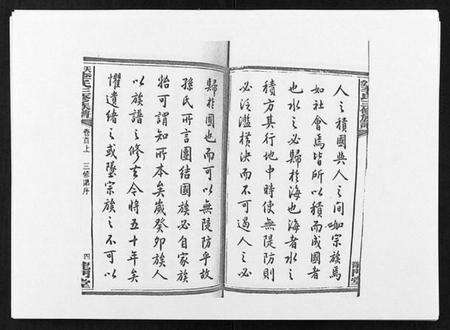 人之積國與人之間咖宗族焉
如社會焉皆所以積而成國者
也水之必歸於海也海者水之
積方其行地中時使無隄防則
必泛濫橫決而不可遏人之必
歸於國也而可以無隄防乎故
孫氏所言團結國族必自家族
始可謂知所本矣歲癸卯族人
以族譜之修去今將五十年矣
懼遺緒之或墜宗族之不可以
卷首上
三修譜序
四